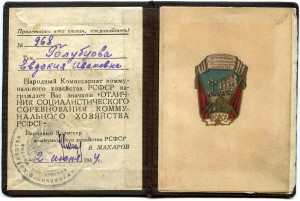 Пролетарии всех стран, соединяйтесь!
№ 968
Голубцова
Евдокия Ивановне
Народный Комиссариат комму-
нального хозяйства РСФСР на-
граждает Вас значком «ОТЛИЧ-
НИК СОЦИАЛИСТИЧЕСКОГО
СОРЕВНОВАНИЯ КОММУ-
НАЛЬНОГО ХОЗЯЙСТВА
РСФСР»
Народный Комиссар
коммунального хозяйства РСФСР
В. МАКАРОВ
2 июня 194